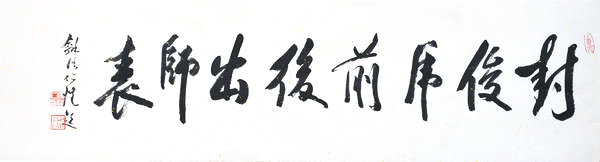 封俊虎前後出師表